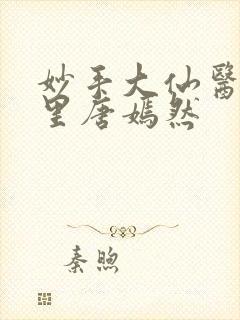 妙手大仙醫
里唐嫣然
秦煦